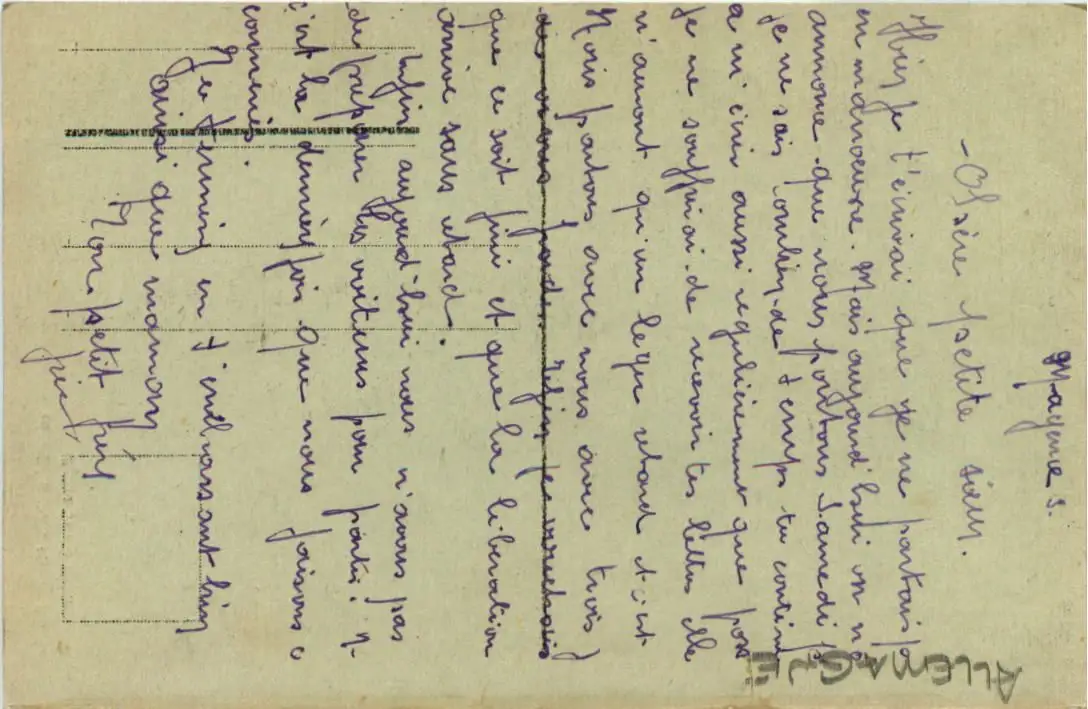 Mayence 5.
- Chère petite sœur.
Hier je t'écrivai que je ne partais p
en manoeuvre. Mais aujourd'hui on n
annonce que nous partons Samedi p
je ne sais combien de temps tu contin
a m'écrire aussi regulièrement que poss
je ne de recevoir tes lettres elle
n'auront qu'un leger retard et c'est
Nous partons avec nous avec trois j
que ce soit fini et que la liberation
arrive sans retard.
Enfin aujourd'hui nous n'avons pas
de preparer les voitures pour partir. et
c'est la dernière fois que nous faisons c
Je termine en t'embrassant bien
ainsi que maman
Ton petit frere
ALLEMAGNE